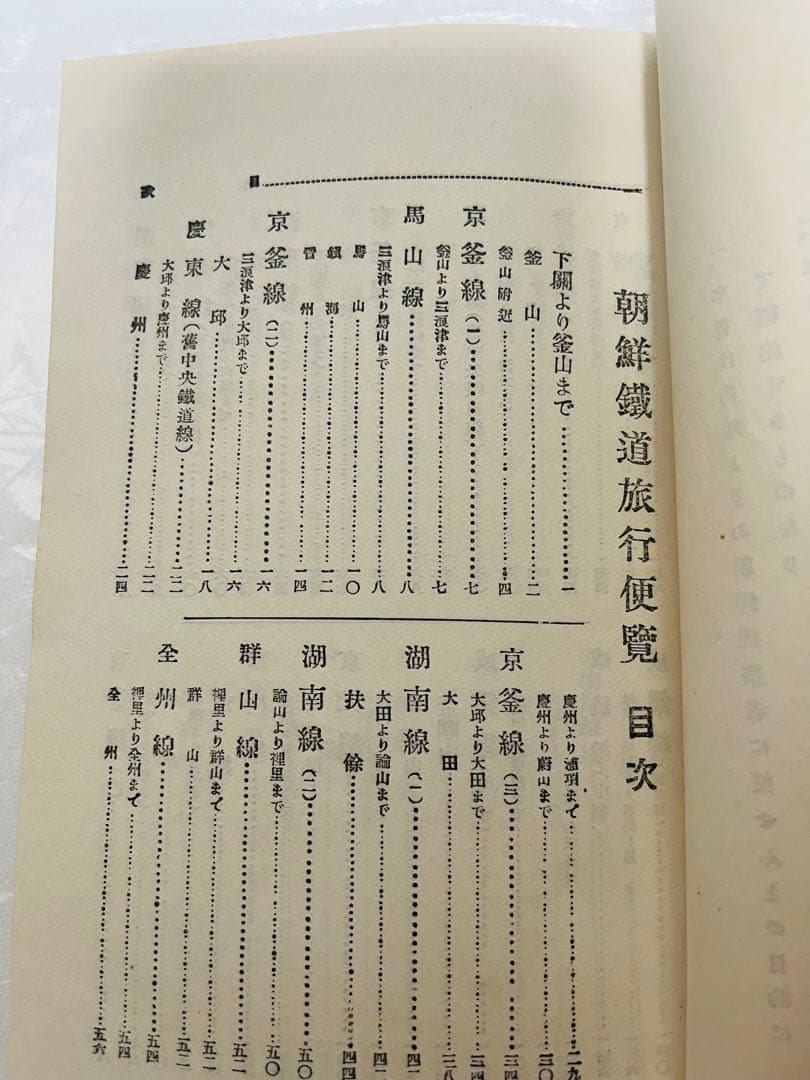 朝鮮鐵道旅行便覽 目次
目……次
下關より釜山まで……一
釜山……二
釜山附近……四
京釜線(一)……七
釜山より三浪津まで……七
馬山線……八
三浪津より馬山まで……八
馬山……一〇
鎭海……一二
晋州……一四
京釜線(二)……一六
三浪津より大邱まで……一六
大邱……一八
慶東線(舊中央鐵道線)……二二
大邱より慶州まで……二二
慶州……二四
慶州より浦項まで……二九
慶州より蔚山まで……三〇
京釜線(三)……三四
大邱より大田まで……三四
大田……三八
湖南線(一)……四二
大田より論山まで……四二
扶餘……四四
湖南線(二)……五〇
論山より裡里まで……五〇
群山線……五二
裡里より群山まで……五二
群山……五二
全州線……五四
裡里より全州まで……五四
全州……五六